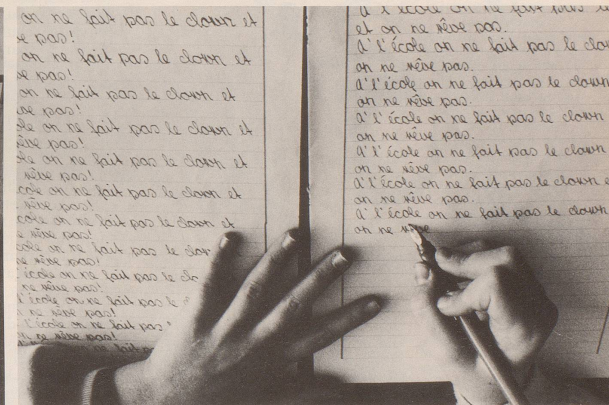 on ne fait pas le clown et
pas!
on ne fait pas le clown et
pas!
on ne fait pas le clown et
pas!
on ne fait pas le clown et
pas!
on ne fait pas le clown et
rêve pas!
école on ne fait pas le clown et
rêve pas!
école on ne fait pas le clown et
ne rêve pas!
école on ne fait pas le
ne rêve pas!
l'école on ne fait pas le
ne rêve pas!
l'école on ne fait pas le
ne rêve pas!
l'école on ne fait pas
ne rêve pas!
on ne fait
à l'école on ne fait pas
et on ne rêve pas.
A l'école on ne fait pas le
on ne rêve pas.
A l'école on ne fait pas le clown
on ne rêve pas.
A l'école on ne fait pas le clown
on ne rêve pas.
A l'école on ne fait pas le clown
on ne rêve pas.
A l'école on ne fait pas le clown
on ne rêve pas.
A l'école on ne fait pas le clown
on ne rêve